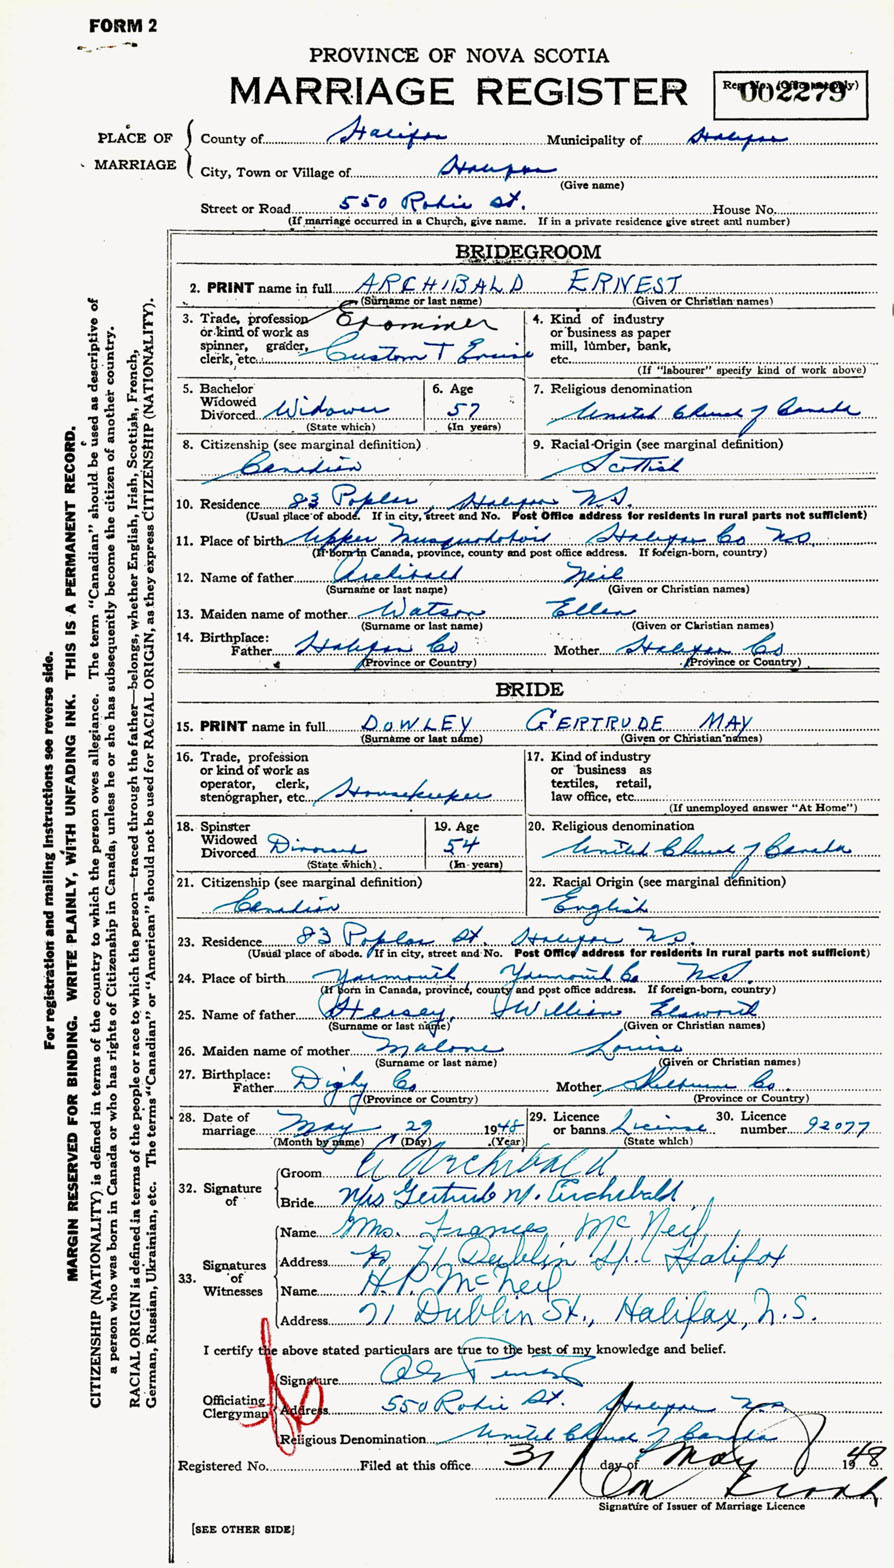 FORM 2
PROVINCE OF NOVA SCOTIA
MARRIAGE REGISTER
Reg. No. (Office use only)
002279
PLACE OF MARRIAGE
County of Halifax Municipality of Halifax
City, Town or Village of Halifax
(Give name)
Street or Road 550 Robie St. House No.
(If marriage occurred in a Church, give name. If in a private residence give street and number)
BRIDEGROOM
2. PRINT name in full ARCHIBALD ERNEST
(Surname or last name) (Given or Christian names)
3. Trade, profession or kind of work as spinner, grader, clerk, etc. Examiner Custom & Excise
4. Kind of industry or business as paper mill, lumber, bank, etc.
(If "labourer" specify kind of work above)
5. Bachelor Widowed Divorced Widower
(State which)
6. Age 57
(In years)
7. Religious denomination United Church of Canada
8. Citizenship (see marginal definition) Canadian
9. Racial Origin (see marginal definition) Scottish
10. Residence 83 Poplar, Halifax N.S.
(Usual place of abode. If in city, street and No. Post Office address for residents in rural parts not sufficient)
11. Place of birth Upper Musquodoboit Halifax Co N.S.
(If born in Canada, province, county and post office address. If foreign-born, country)
12. Name of father Archibald Neil
(Surname or last name) (Given or Christian names)
13. Maiden name of mother Watson Ellen
(Surname or last name) (Given or Christian names)
14. Birthplace:
Father Halifax Co Mother Halifax Co
(Province or Country) (Province or Country)
BRIDE
15. PRINT name in full DOWLEY GERTRUDE MAY
(Surname or last name) (Given or Christian names)
16. Trade, profession or kind of work as operator, clerk, stenographer, etc. Housekeeper
17. Kind of industry or business as textiles, retail, law office, etc.
(If unemployed answer "At Home")
18. Spinster Widowed Divorced Divorced
(State which)
19. Age 54
(In years)
20. Religious denomination United Church of Canada
21. Citizenship (see marginal definition) Canadian
22. Racial Origin (see marginal definition) English
23. Residence 83 Poplar St. Halifax N.S.
(Usual place of abode. If in city, street and No. Post Office address for residents in rural parts not sufficient)
24. Place of birth Yarmouth, Yarmouth Co N.S.
(If born in Canada, province, county and post office address. If foreign-born, country)
25. Name of father Hersey, William Elsworth
(Surname or last name) (Given or Christian names)
26. Maiden name of mother Malone Louise
(Surname or last name) (Given or Christian names)
27. Birthplace:
Father Digby Co Mother Shelburne Co.
(Province or Country) (Province or Country)
28. Date of marriage May 29 1948
(Month by name) (Day) (Year)
29. Licence or banns License
(State which)
30. Licence number 92077
32. Signature of
Groom E Archibald
Bride Mrs Gertrude M. Archibald
33. Signatures of Witnesses
Name Mrs. Frances McNeil
Address 71 Dublin St. Halifax
Name H.P. McNeil
Address 71 Dublin St., Halifax, N.S.
I certify the above stated particulars are true to the best of my knowledge and belief.
Officiating Clergyman
Signature
Address 550 Robie St. Halifax N.S.
Religious Denomination United Church of Canada
Registered No. Filed at this office 31 day of May 1948
Signature of Issuer of Marriage Licence
[SEE OTHER SIDE]
For registration and mailing instructions see reverse side.
MARGIN RESERVED FOR BINDING. WRITE PLAINLY, WITH UNFADING INK. THIS IS A PERMANENT RECORD.
CITIZENSHIP (NATIONALITY) is defined in terms of the country to which the person owes allegiance. The term "Canadian" should be used as descriptive of
a person who was born in Canada or who has rights of Citizenship in Canada, unless he or she has subsequently become the citizen of another country.
RACIAL ORIGIN is defined in terms of the people or race to which the person—traced through the father—belongs, whether English, Irish, Scottish, French,
German, Russian, Ukrainian, etc. The terms "Canadian" or "American" should not be used for RACIAL ORIGIN, as they express CITIZENSHIP (NATIONALITY).